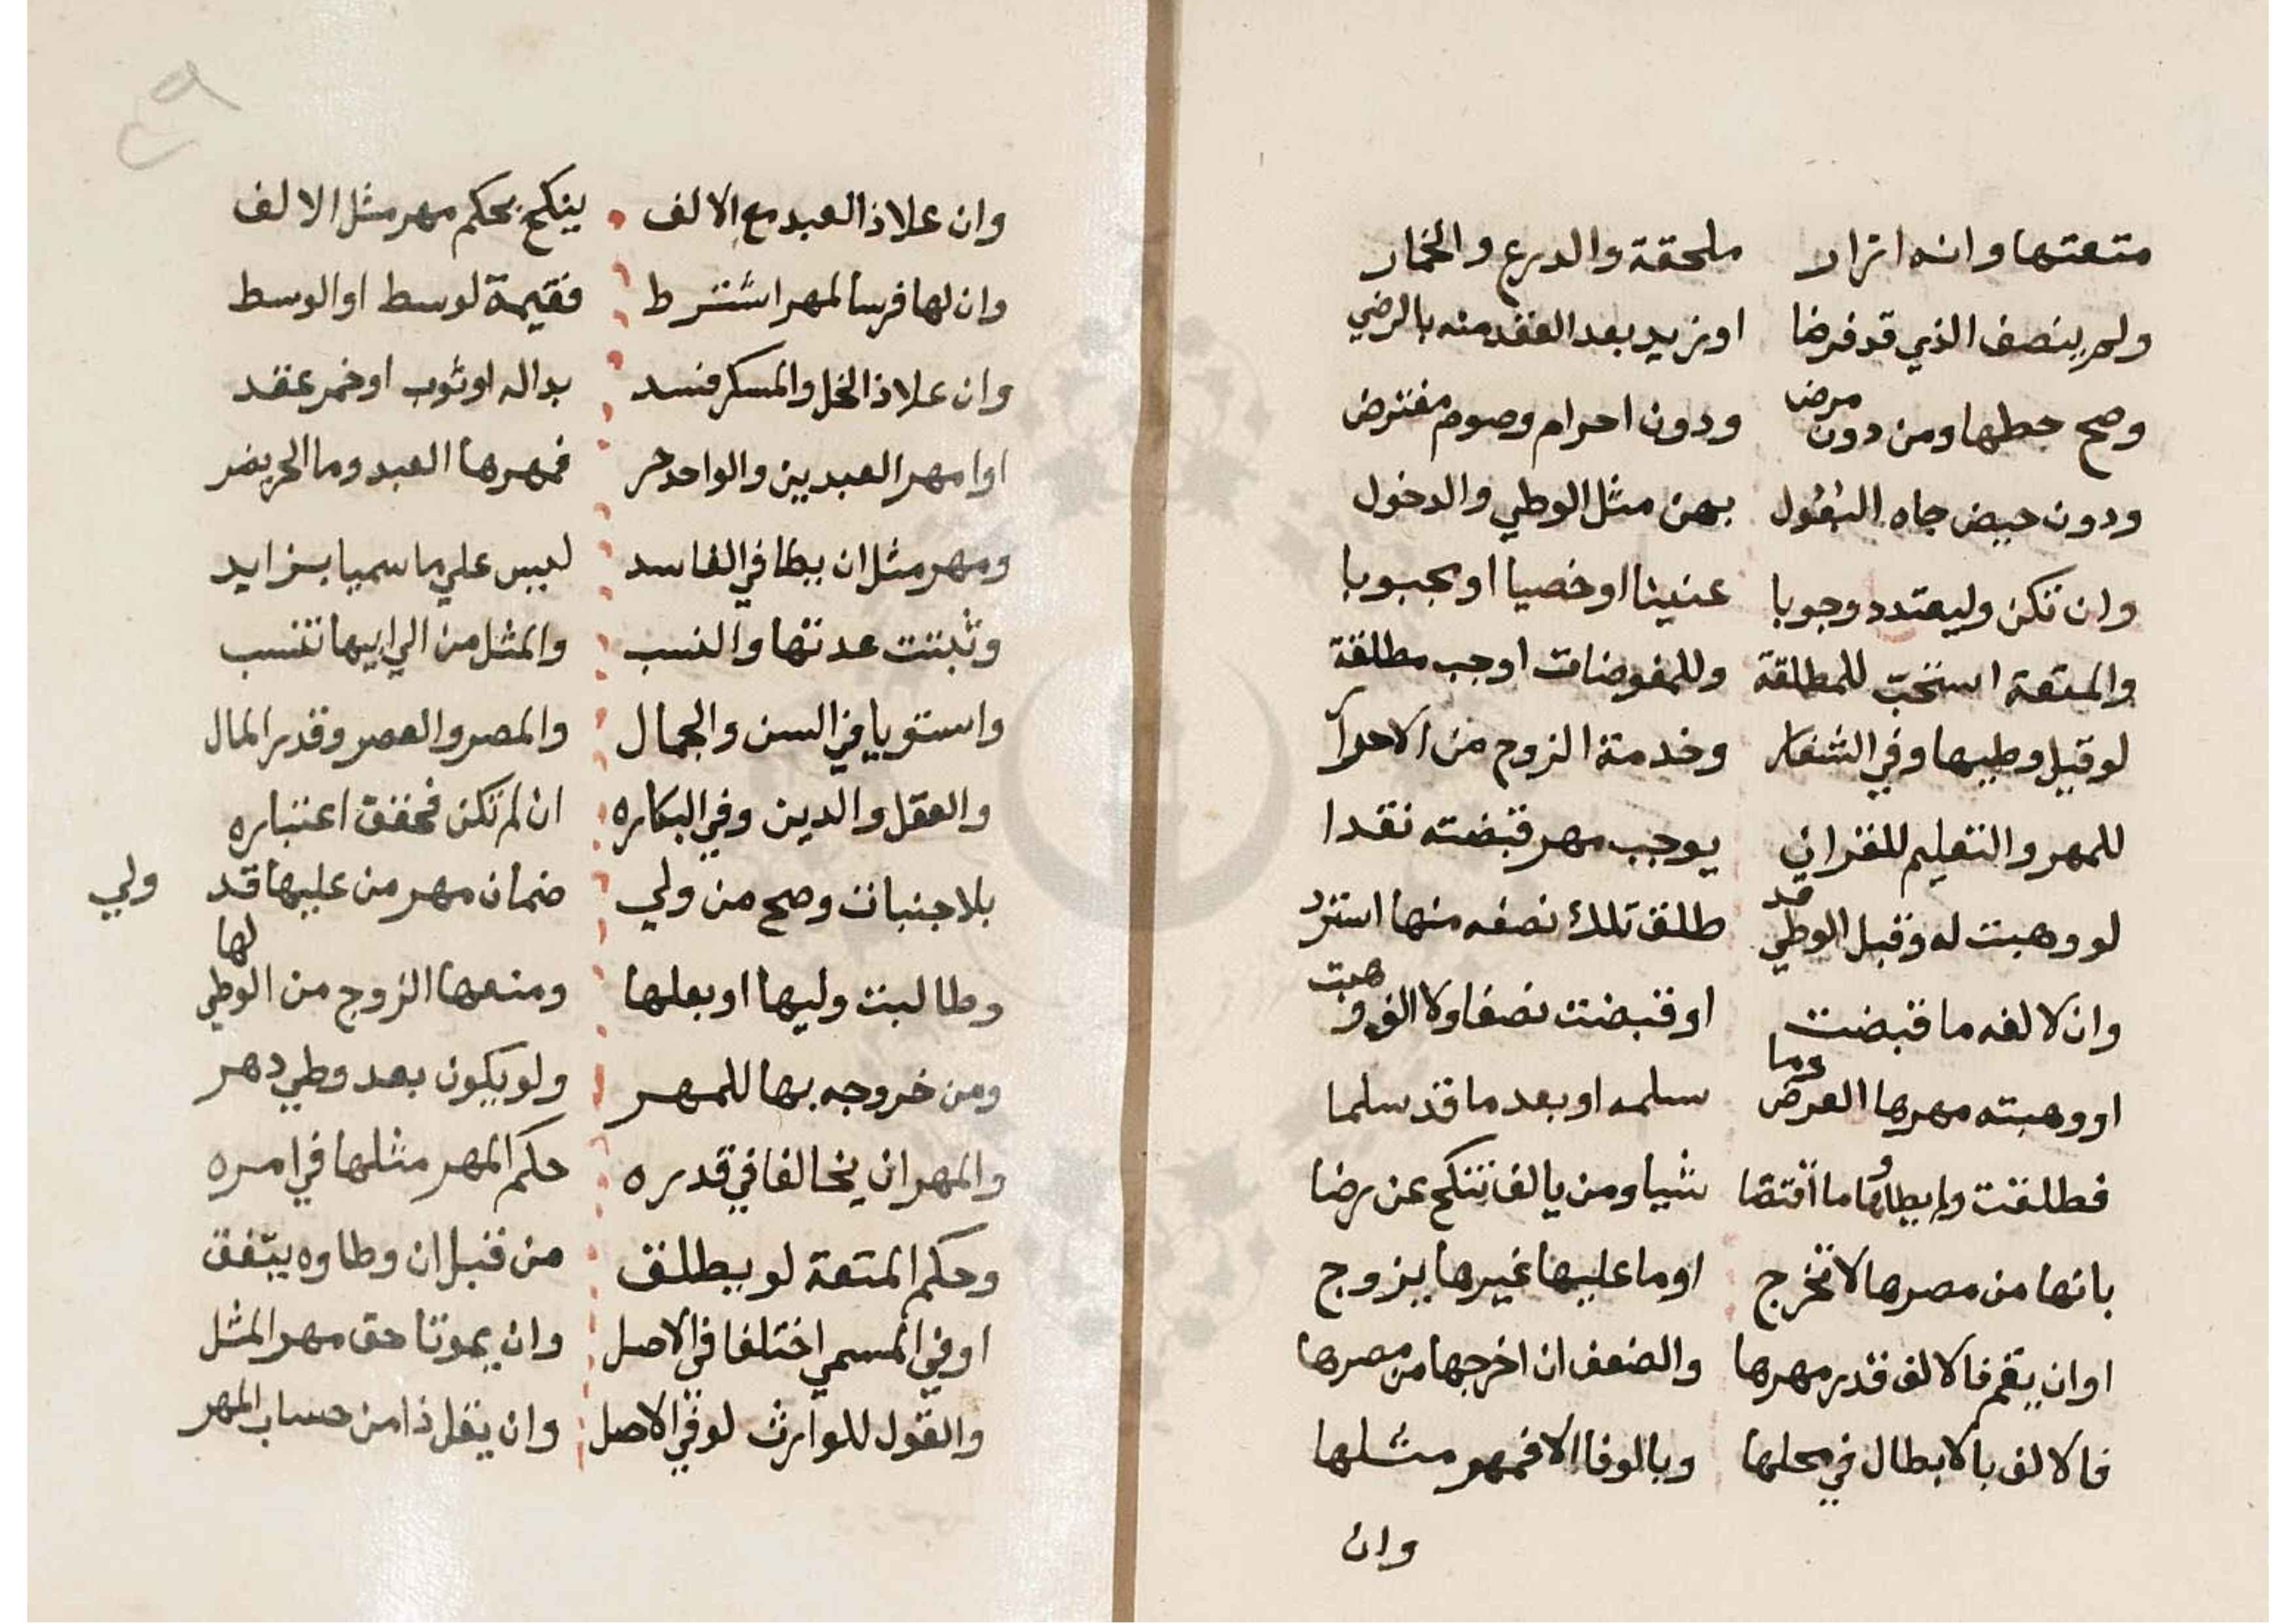 متعتها وانه ازار ملحقة والدرع والخمار
ولم ينصف الذي قد فرضا او زيد بعد العقد منه بالرضي
وصح حطها ومن دون مرض ودون احرام وصوم مفترض
ودون حيض جاه النقول بهن مثل الوطي والدخول
وان تكن وليعتدد وجوبا عنينا او خصيا او مجبوبا
والمتعة استحب للمطلقة وللمفوضات اوجب مطلقة
لو قبل وطيها وفي الشغار وخدمة الزوج من الاحرار
للمهر والتعليم للقران يوجب مهر قبضته نقدا
لو وهبت له وقبل الوطي قد طلق تلك نصفه منها استرد
وان لا لفه ما قبضت او قبضت نصفا ولا الف وهبت
او وهبته مهرها العرض وما سلمه او بعد ما قد سلما
فطلقت وابطاوها ما اقتضا شيا ومن يالف تنكح عن رضا
بانها من مصرها لا تخرج او ما عليها غيرها يزوج
او ان يقم فالالف قدر مهرها والضعف ان اخرجها من مصرها
فالالف بالابطال في محلها وبالوفا الا فمهر مثلها
وان
وان علا ذا العبد مع الالف ينكح بحكم مهر مثل الالف
وان لها فرسا لمهر اشترط فقيمة لوسط او الوسط
وان علا ذا الخل والمسكر فسد بداله او ثوب او خمر عقد
او امهر العبدين والواحد حر فمهرها العبد وما الحر يضر
ومهر مثل ان يطا في الفاسد ليس علي ما سميا بزايد
وثبتت عدتها والنسب والمثل من الي ابيها تنسب
واستويا في السن والجمال والمصر والعصر وقدر المال
والعقل والدين وفي البكاره ان لم تكن فحقق اعتباره
بلاجنبات وصح من ولي ضمان مهر من عليها قد ولي
وطالبت وليها او بعلها ومنعها الزوج من الوطي لها
ومن خروجه بها للمهر ولو يكون بعد وطي دهر
والمهر ان يخالفا في قدره حكم المهر مثلها في امره
وحكم المتعة لو يطلق من قبل ان وطاوه يتفق
او في المسمي اختلفا في الاصل وان يموتا حق مهر المثل
والقول للوارث لو في الاصل وان يقل ذا من حساب المهر